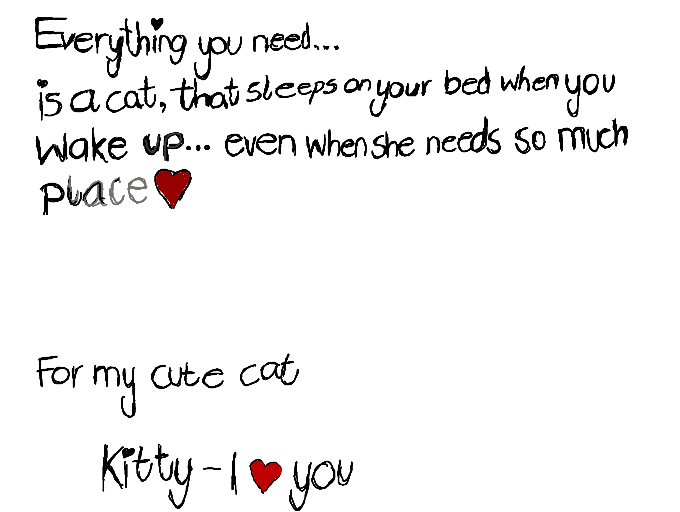 Everything you need...
is a cat, that sleeps on your bed when you
wake up... even when she needs so much
place ♥
For my cute cat
Kitty - I ♥ you